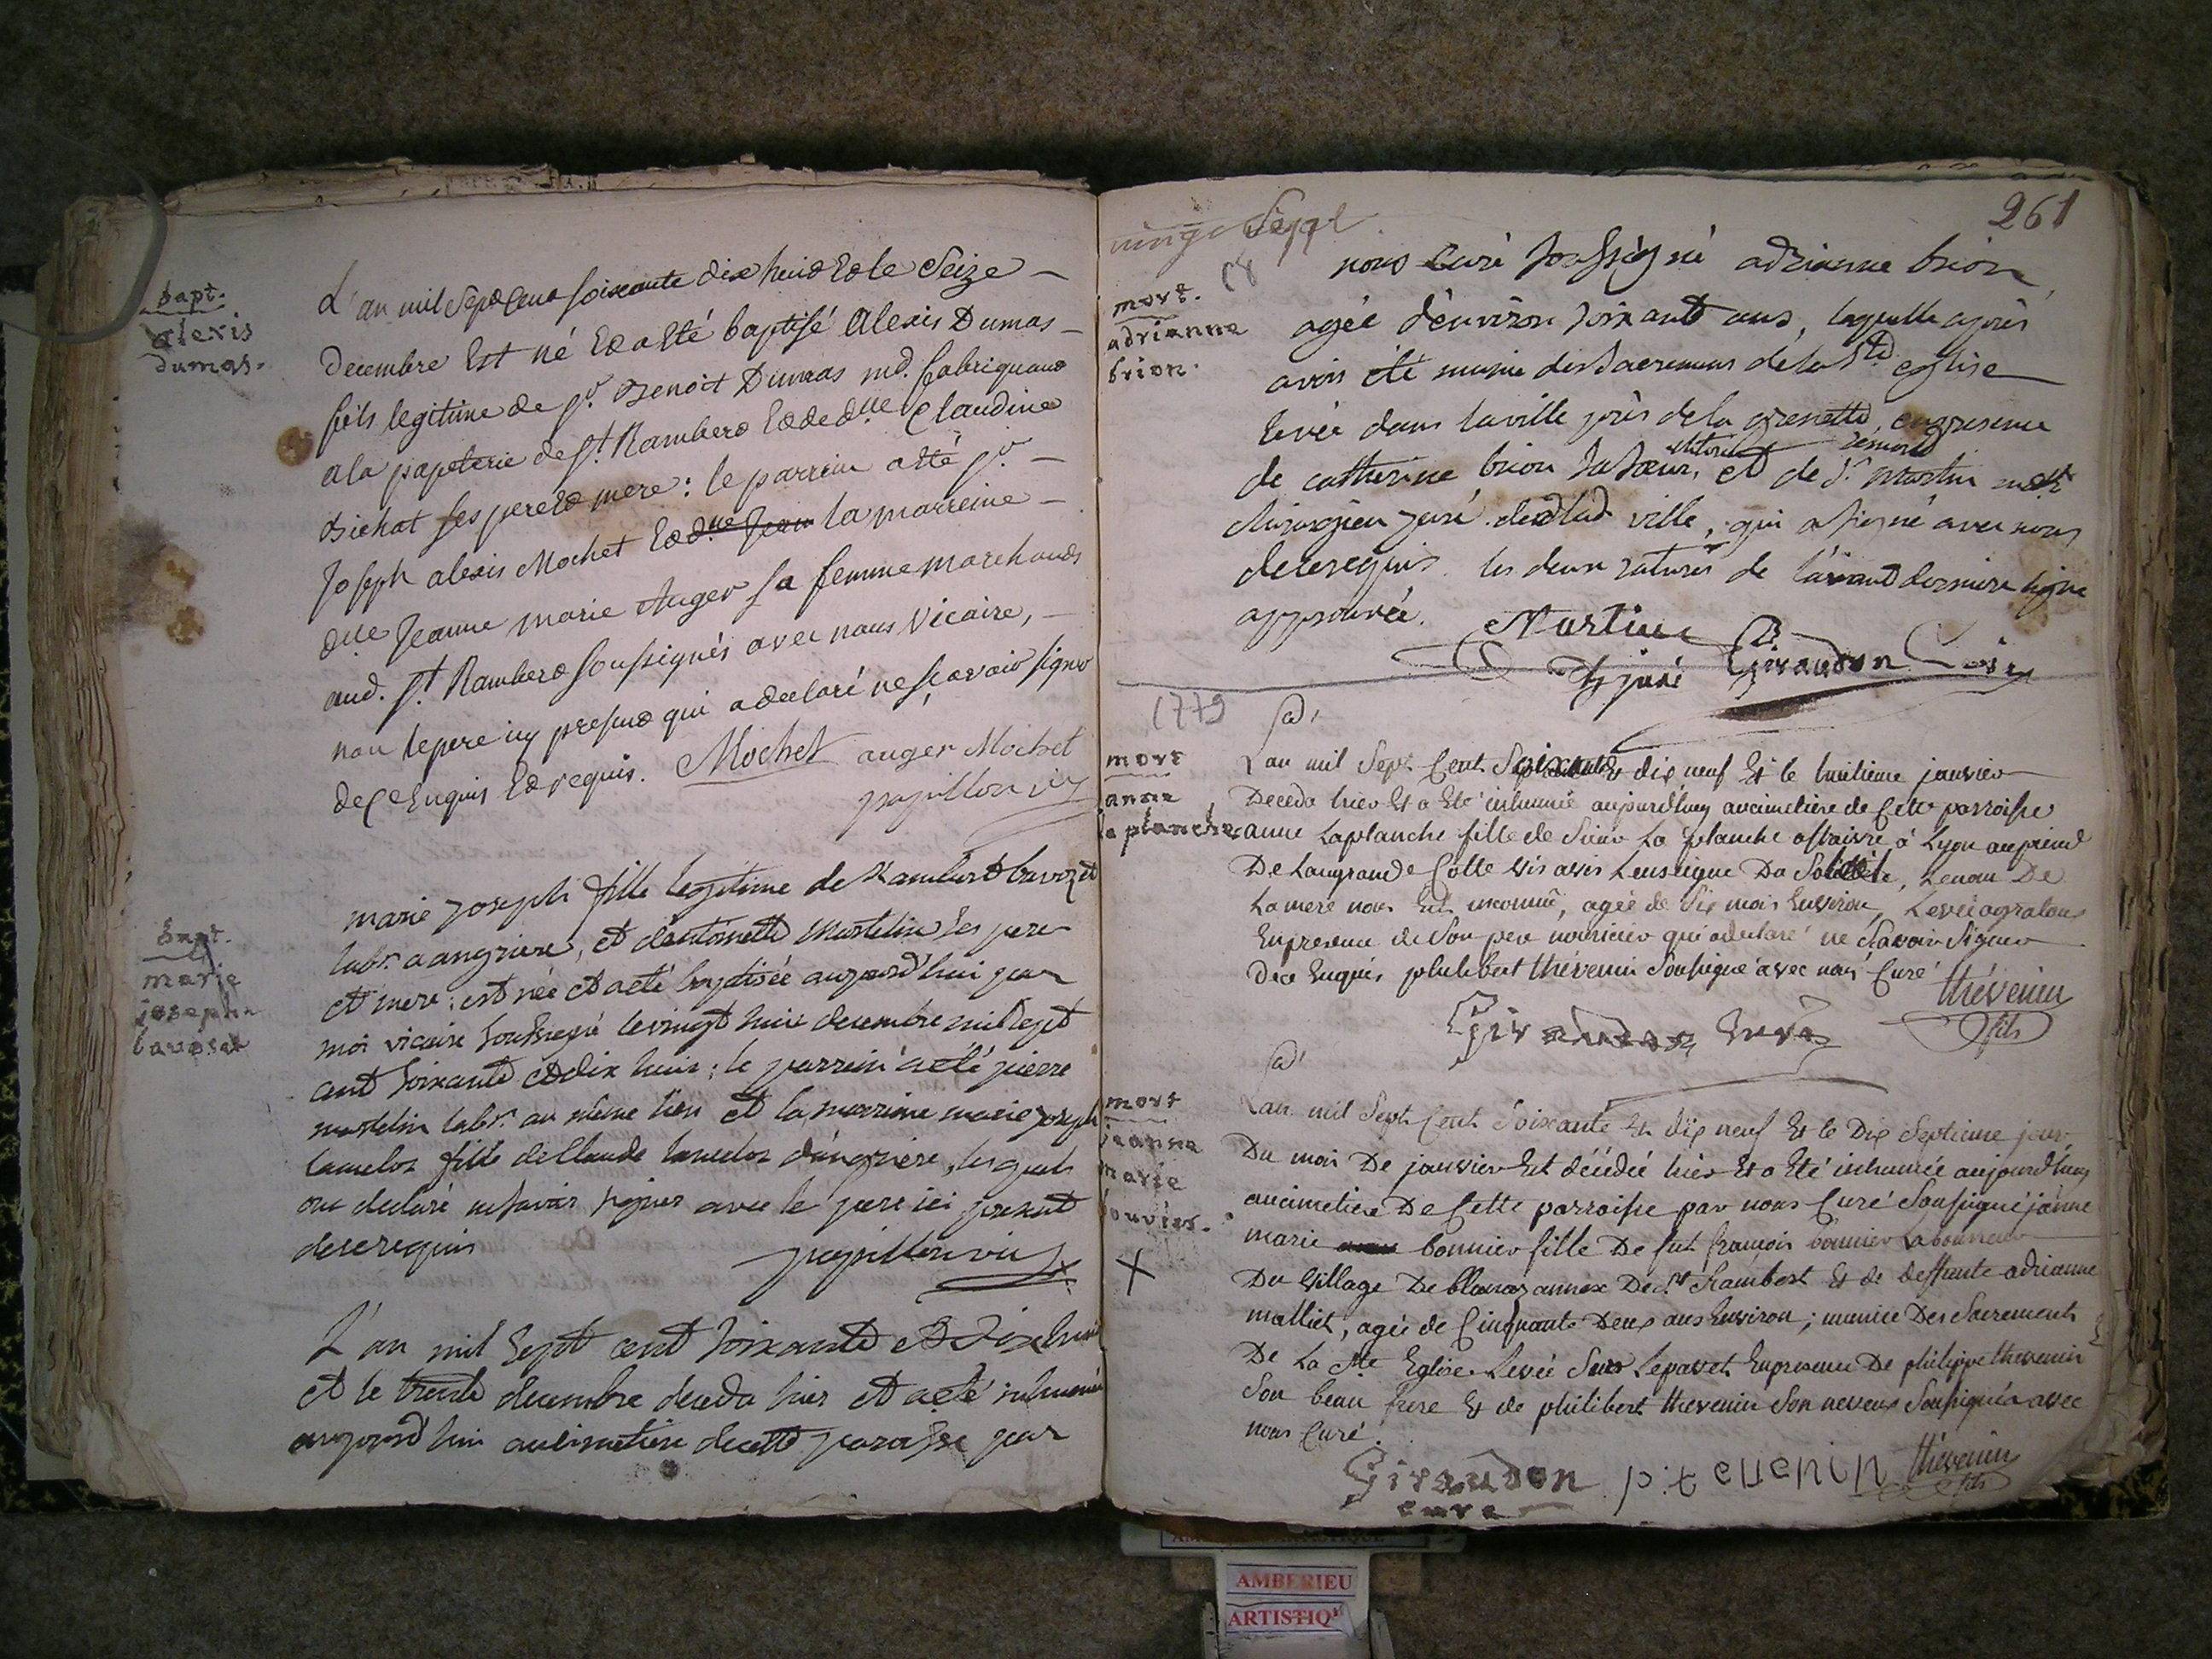 bapt.
alexis
dumas.
L'an mil Sept Cent soixante dix huit Et le Seize
decembre Est né Et a Eté baptisé Alexis Dumas
fils legitime de sr. Benoit Dumas md. fabriquant
a la papeterie de st. Rambert Et de dlle Claudine
Bichat ses pere Et mere : le parrein a eté sr.
Joseph alexis Mochet Et dlle Jean la marreine
dlle Jeanne marie Auger sa femme marchands
aud. st Rambert soussignés avec nous Vicaire,
non le pere icy present qui a declaré ne sçavoir signer
de ce Enquis Et requis. Mochet auger Mochet
papillon vic
bapt.
marie
joseph
bavoset
marie joseph fille legitime de Rambert bavozet
labr. a angrieres, et d'antoinette Martelin ses pere
et mere : est née et a eté baptisée aujourd'hui par
moi vicaire soussigné le vingt huit decembre mil sept
cent soixante et dix huit ; le parrein a eté pierre
martelin labr. au même lieu et la marreine marie joseph
fille de Claude d'angriere, lesquels
ont declaré ne savoir signer avec le pere ici present
de ce requis
papillon vic
L'an mil Sept cent soixante et Dix huit
et le trente decembre deceda hier et a eté inhumée
aujourd'hui au cimetiere de cette paroisse par
261
vingt Sept
mort.
adrianne
brion.
nous Curé soussigné adrianne brion
agée d'environ soixante ans, laquelle après
avoir été munie des sacremens de la Ste eglise
levée dans la ville près de la grenette, en presence
de catherine brion sa soeur, et de sr. Martin me
chirurgien juré de lad ville, qui a signé avec nous
de ce requis les deux ratures de l'avant derniere ligne
approuvée.
Martin
Ch juré Giraudon Curé
1779
mort
anne
la planche
L'an mil Sept Cent Soixante dix neuf Et le huitieme janvier
Deceda hier Et a Eté inhumée aujourd'huy au cimetiere de Cette parroisse
anne Laplanche fille de Sieur La planche à Lyon au pied
De La grande Cotte vis avis Lenseigne Du Soleil, Le nom De
La mere nous Est inconnu, agée de Six mois Environ, Levée
En presence de Son pere nourricier qui a declaré ne Savoir Signer
de ce Enquis philibert thévenin Soussigné avec nous Curé
thévenin
fils
Giraudon Curé
mort
jeanne
marie
bouvier.
X
L'an mil Sept Cent Soixante Et dix neuf Et le Dix Septieme jour
Du mois De janvier Est décédée hier Et a Eté inhumée aujourd'huy
au cimetiere De Cette parroisse par nous Curé Soussigné jeanne
marie bonnier fille De fut françois bonnier Laboureur
Du Village De blanaz annexe De st Rambert Et de deffunte adrianne
malliet, agée de Cinquante Deux ans Environ ; munie Des Sacrements
De La Ste Eglise Levée Sur Le pavet En presence De philippe thevenin
Son beau frere Et de philibert thevenin Son neveux Soussignés avec
nous Curé.
Giraudon
curé
p: teuenin
thévenin
fils
AMBERIEU
ARTISTIQ